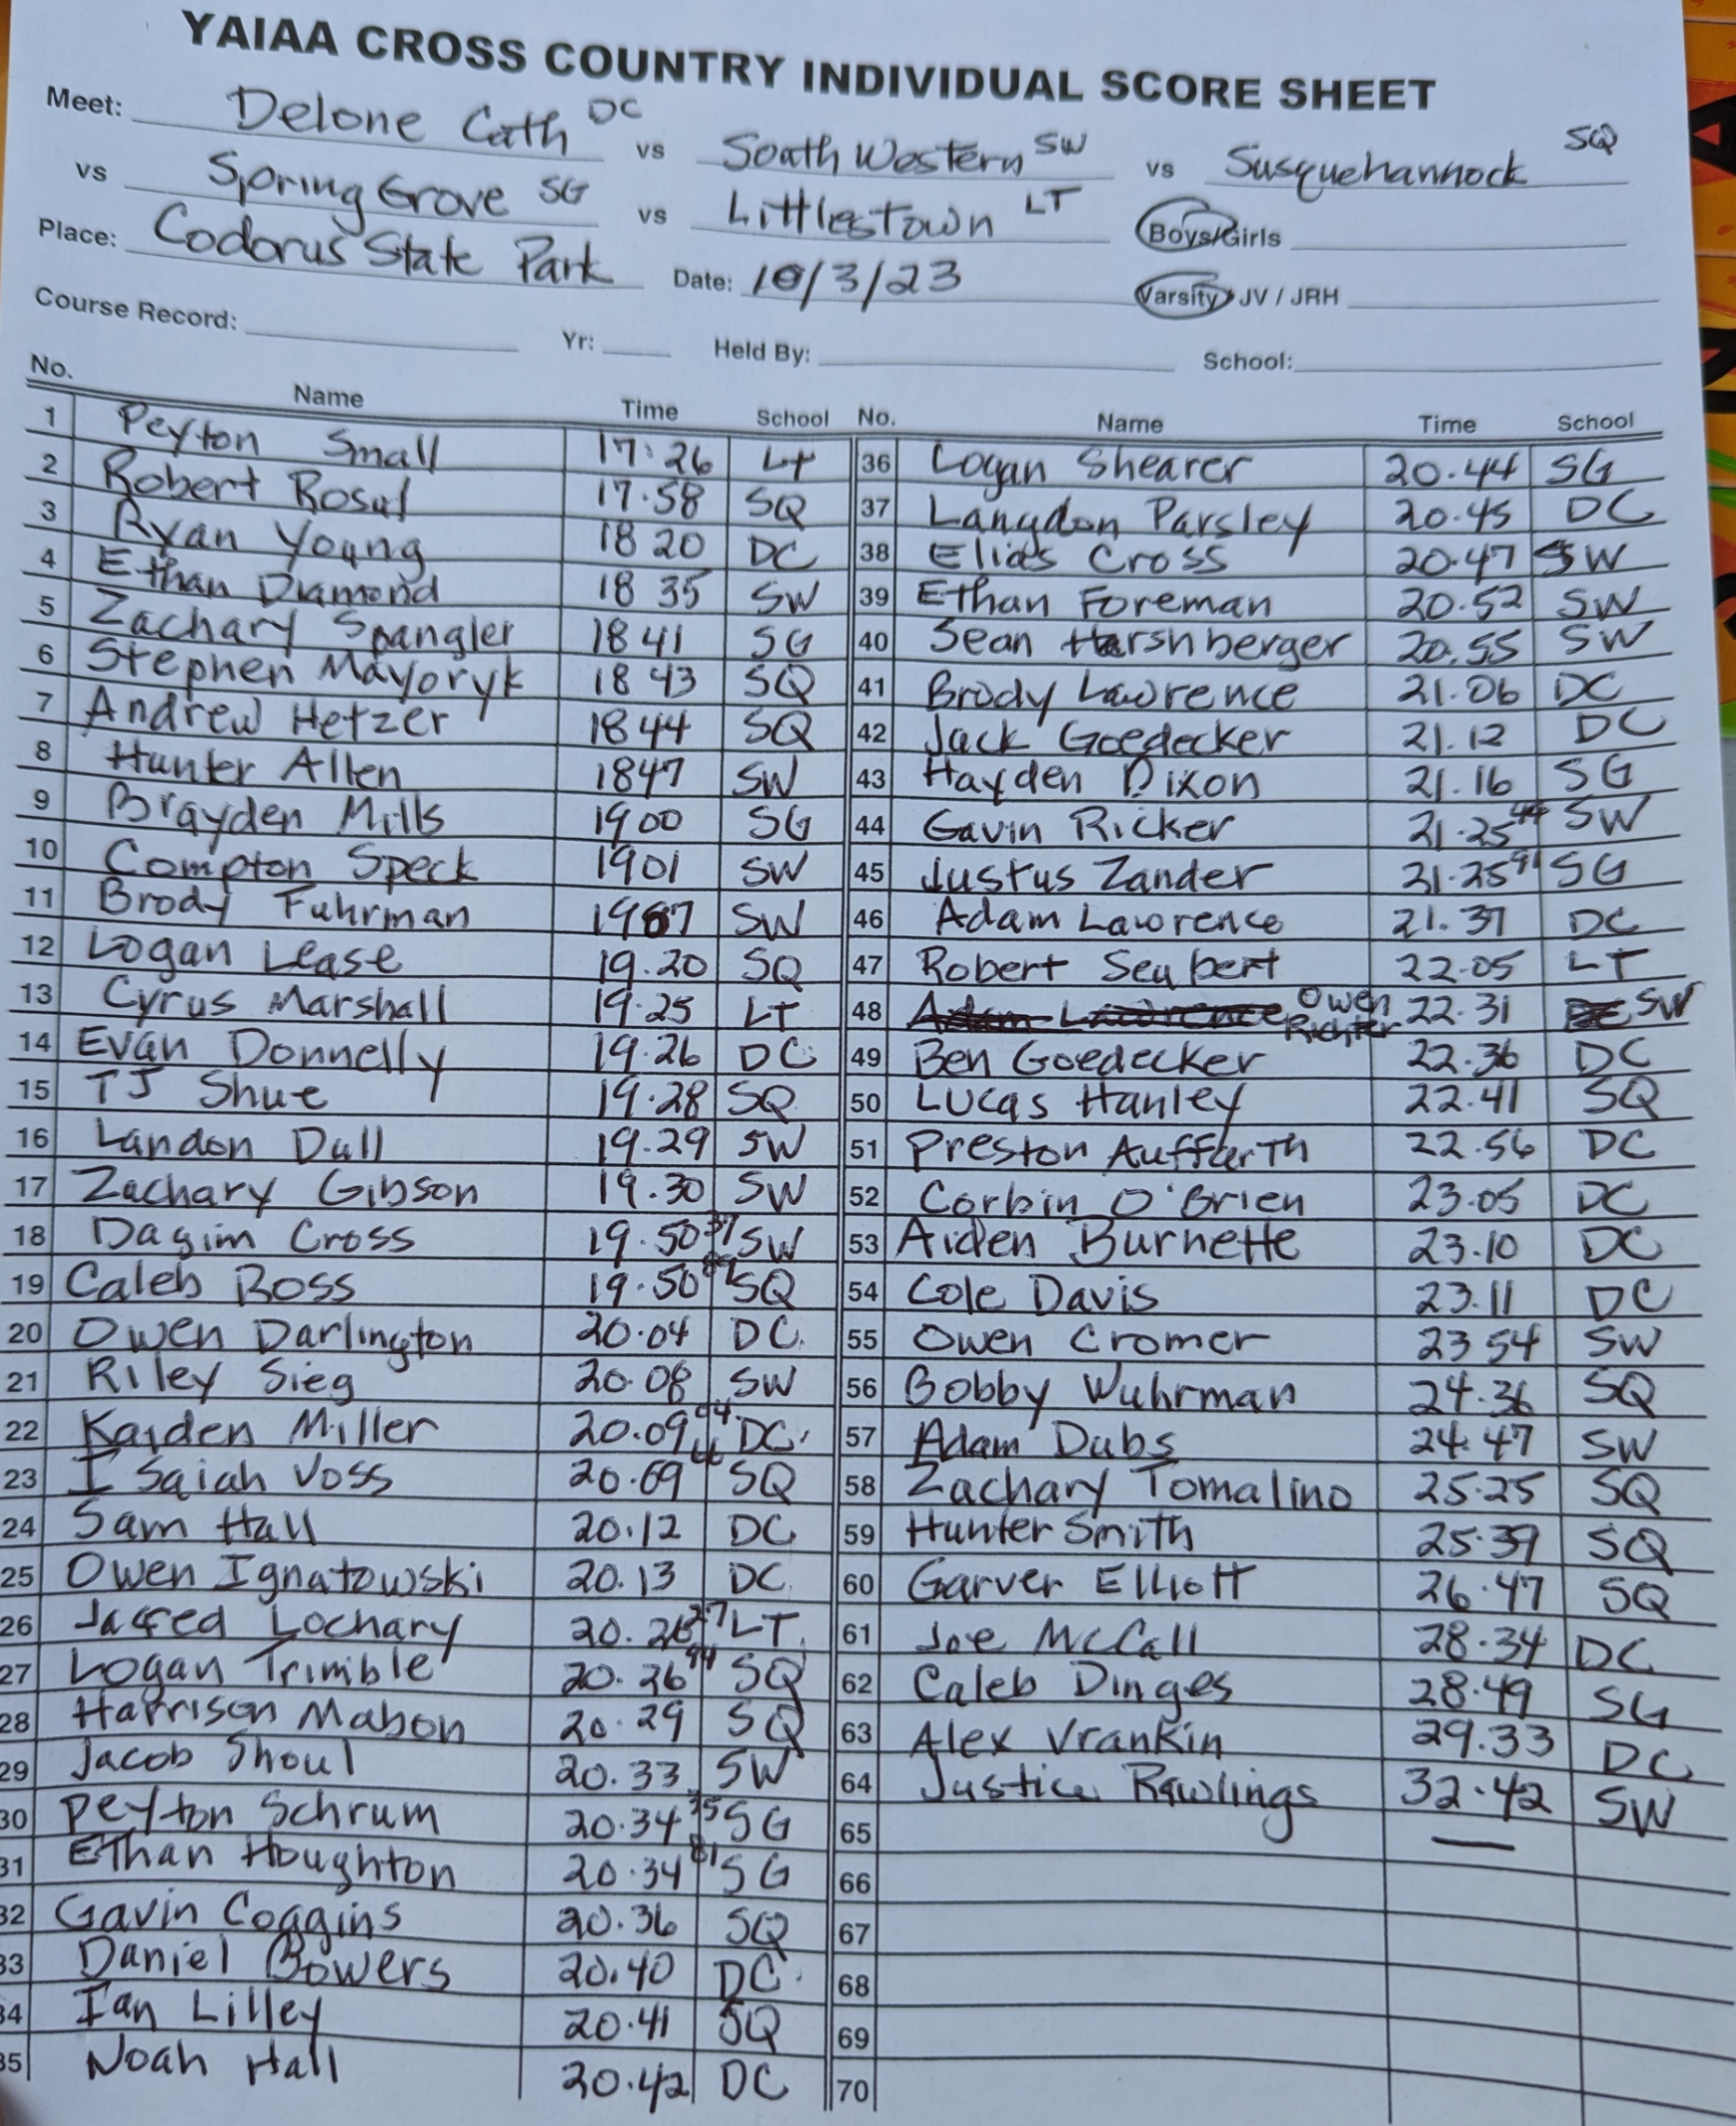 YAIAA CROSS COUNTRY INDIVIDUAL SCORE SHEET
Meet: Delone Cath DC vs South Western SW vs Susquehannock SQ
vs Spring Grove SG vs Littlestown LT Boys/Girls
Place: Codorus State Park Date: 10/3/23 Varsity / JV / JRH
Course Record: Yr: Held By: School:
No. Name Time School No. Name Time School
1 Peyton Small 17:26 LT 36 Logan Shearer 20.44 SG
2 Robert Rosul 17.58 SQ 37 Langdon Parsley 20.45 DC
3 Ryan Young 18 20 DC 38 Elias Cross 20.47 SW
4 Ethan Diamond 18 35 SW 39 Ethan Foreman 20.52 SW
5 Zachary Spangler 18 41 SG 40 Sean Harshberger 20.55 SW
6 Stephen Mayoryk 18 43 SQ 41 Brody Lawrence 21.06 DC
7 Andrew Hetzer 18 44 SQ 42 Jack Goedecker 21.12 DC
8 Hunter Allen 1847 SW 43 Hayden Dixon 21.16 SG
9 Brayden Mills 1900 SG 44 Gavin Ricker 21.25 44 SW
10 Compton Speck 1901 SW 45 Justus Zander 21.25 91 SG
11 Brody Fuhrman 1907 SW 46 Adam Lawrence 21.37 DC
12 Logan Lease 19.20 SQ 47 Robert Seubert 22.05 LT
13 Cyrus Marshall 19.25 LT 48 Adam Lawrence Owen Richter 22.31 SW
14 Evan Donnelly 19.26 DC 49 Ben Goedecker 22.36 DC
15 TJ Shue 19.28 SQ 50 Lucas Hanley 22.41 SQ
16 Landon Dull 19.29 SW 51 Preston Auffarth 22.56 DC
17 Zachary Gibson 19.30 SW 52 Corbin O'Brien 23.05 DC
18 Dagim Cross 19.50 37 SW 53 Aiden Burnette 23.10 DC
19 Caleb Ross 19.50 SQ 54 Cole Davis 23.11 DC
20 Owen Darlington 20.04 DC 55 Owen Cromer 23 54 SW
21 Riley Sieg 20.08 SW 56 Bobby Wuhrman 24.36 SQ
22 Kaiden Miller 20.09 04 DC 57 Adam Dubs 24.47 SW
23 Isaiah Voss 20.09 66 SQ 58 Zachary Tomalino 25.25 SQ
24 Sam Hall 20.12 DC 59 Hunter Smith 25.39 SQ
25 Owen Ignatowski 20.13 DC 60 Garver Elliott 26.47 SQ
26 Jarred Lochary 20.26 27 LT 61 Joe McCall 28.34 DC
27 Logan Trimble 20.26 94 SQ 62 Caleb Dinges 28.49 SG
28 Harrison Mabon 20.29 SQ 63 Alex Vrankin 29.33 DC
29 Jacob Shoul 20.33 SW 64 Justice Rawlings 32.42 SW
30 Peyton Schrum 20.34 35 SG 65
31 Ethan Houghton 20.34 81 SG 66
32 Gavin Coggins 20.36 SQ 67
33 Daniel Bowers 20.40 DC 68
34 Ian Lilley 20.41 SQ 69
35 Noah Hall 20.42 DC 70